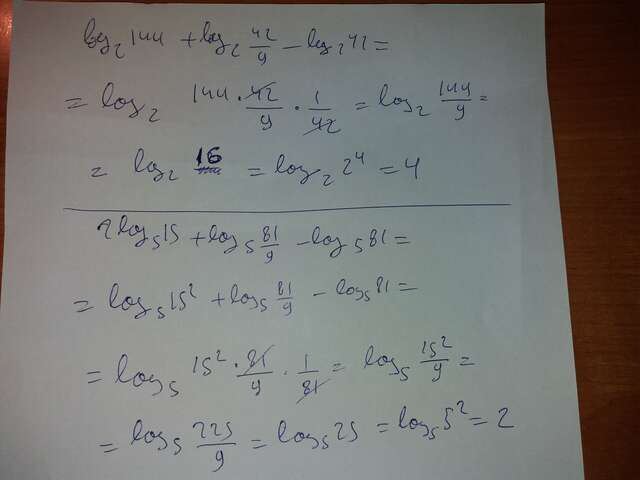 log₂144 + log₂ 42/9 - log₂42 =
= log₂ 144 · 42/9 · 1/42 = log₂ 144/9 =
= log₂ 16 = log₂ 2⁴ = 4
2log₅15 + log₅ 81/9 - log₅81 =
= log₅15² + log₅ 81/9 - log₅81 =
= log₅ 15² · 81/9 · 1/81 = log₅ 15²/9 =
= log₅ 225/9 = log₅25 = log₅5² = 2